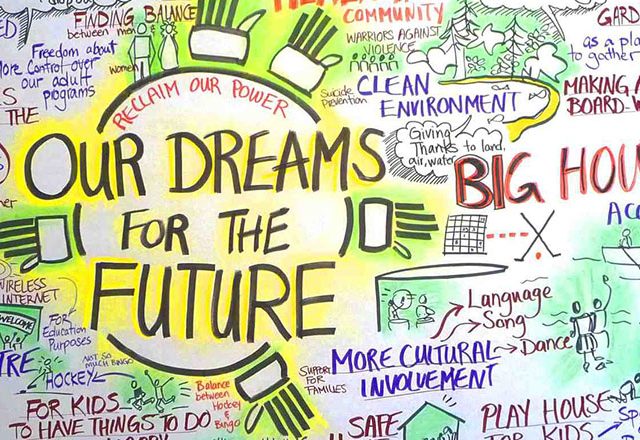 FINDING BALANCE
between men
women
Freedom about
More Control over
our adult
pograms
THE
RECLAIM OUR POWER
OUR DREAMS
FOR THE
FUTURE
COMMUNITY
WARRIORS AGAINST
VIOLENCE
Suicide
Prevention
CLEAN
ENVIRONMENT
Giving
Thanks to land,
air, water
GARD
as a pla
to gather
MAKING A
BOARD-W
BIG HOU
AC
WIRELESS
INTERNET
WELCOME
FOR
Education
Purposes
TRE
NOT SO
MUCH BINGO
HOCKEY
FOR KIDS
TO HAVE THINGS TO DO
Balance
between
Hockey
& Bingo
SUPPORT
FOR
FAMILIES
MORE CULTURAL
INVOLVEMENT
Language
Song
Dance
SAFE
PLAY HOUSE
KIDS